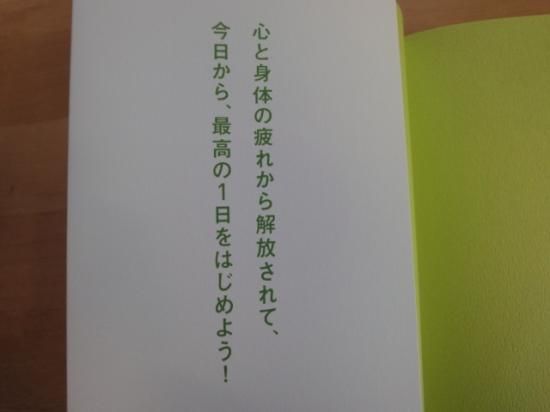 心と身体の疲れから解放されて、
今日から、最高の1日をはじめよう！